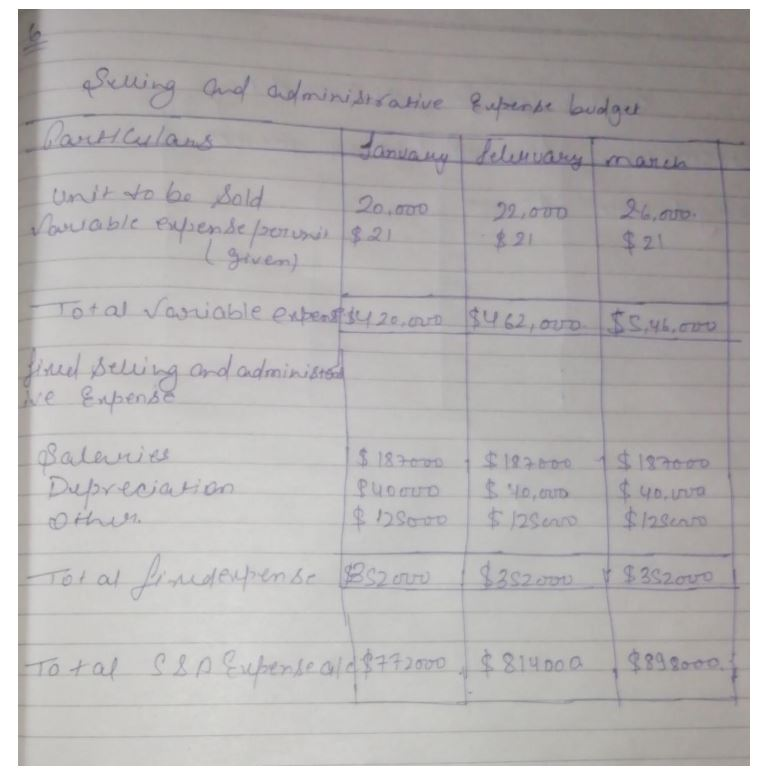 6
Selling and administrative Expense budget
Particulars January February march
Unit to be Sold 20,000 22,000 26,000.
Variable expense/per unit $21 $21 $21
(given)
Total Variable expense $420,000 $462,000. $5,46,000
fixed Selling and administrat
ive Expense
Salaries $187000 $187000 $187000
Depreciation $40000 $40,000 $40,000
Other. $125000 $125000 $125000
Total fixed expense $352000 $352000 $352000
Total S&A Expense $772000 $814000 $898000.